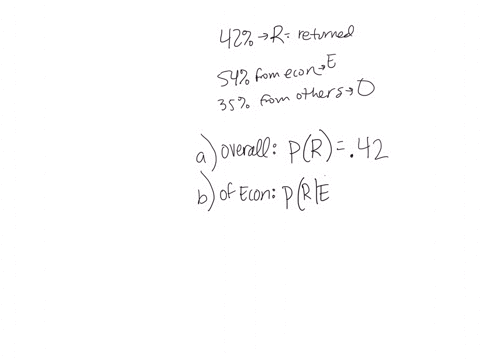 42% → R = returned
54% from econ → E
35% from others → O
a) overall: P(R) = .42
b) of Econ: P(R|E